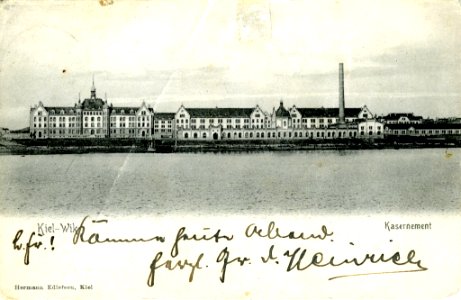 Kiel-Wik
Kasernement
L. Fr.! Komme heute Abend.
Herzl. Gr. d. Heinrich
Hermann Edlefsen, Kiel